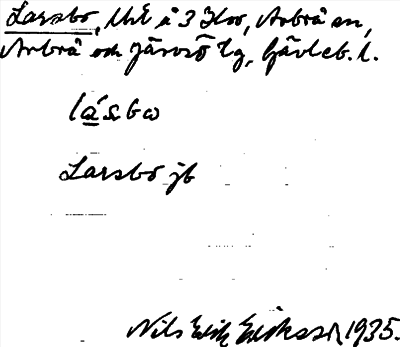 Larsbo, by i 3 Koo, Arbrå sn,
Arbrå och Järvsö tg, Gävleb. l.
lásbω
Larsbo jb
Nils Erik Eriksson 1935.